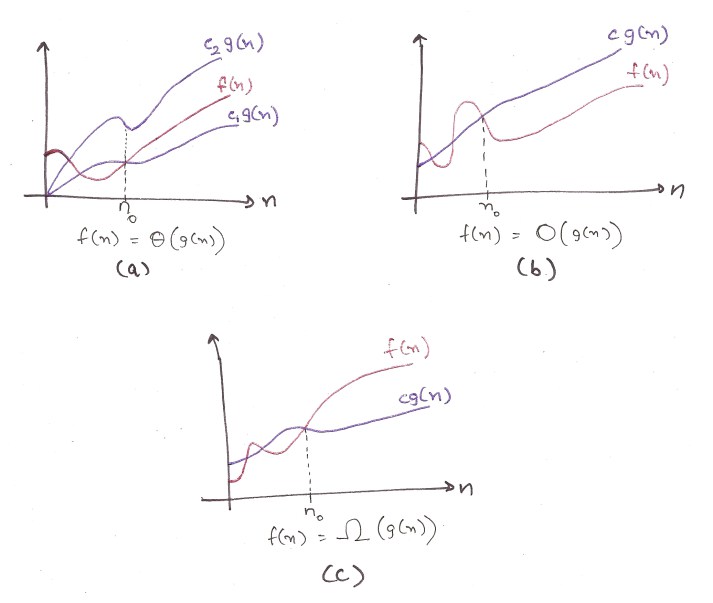 c₂g(n)
f(n)
c₁g(n)
n
n₀
f(n) = Θ(g(n))
(a)
cg(n)
f(n)
n
n₀
f(n) = O(g(n))
(b)
f(n)
cg(n)
n
n₀
f(n) = Ω(g(n))
(c)